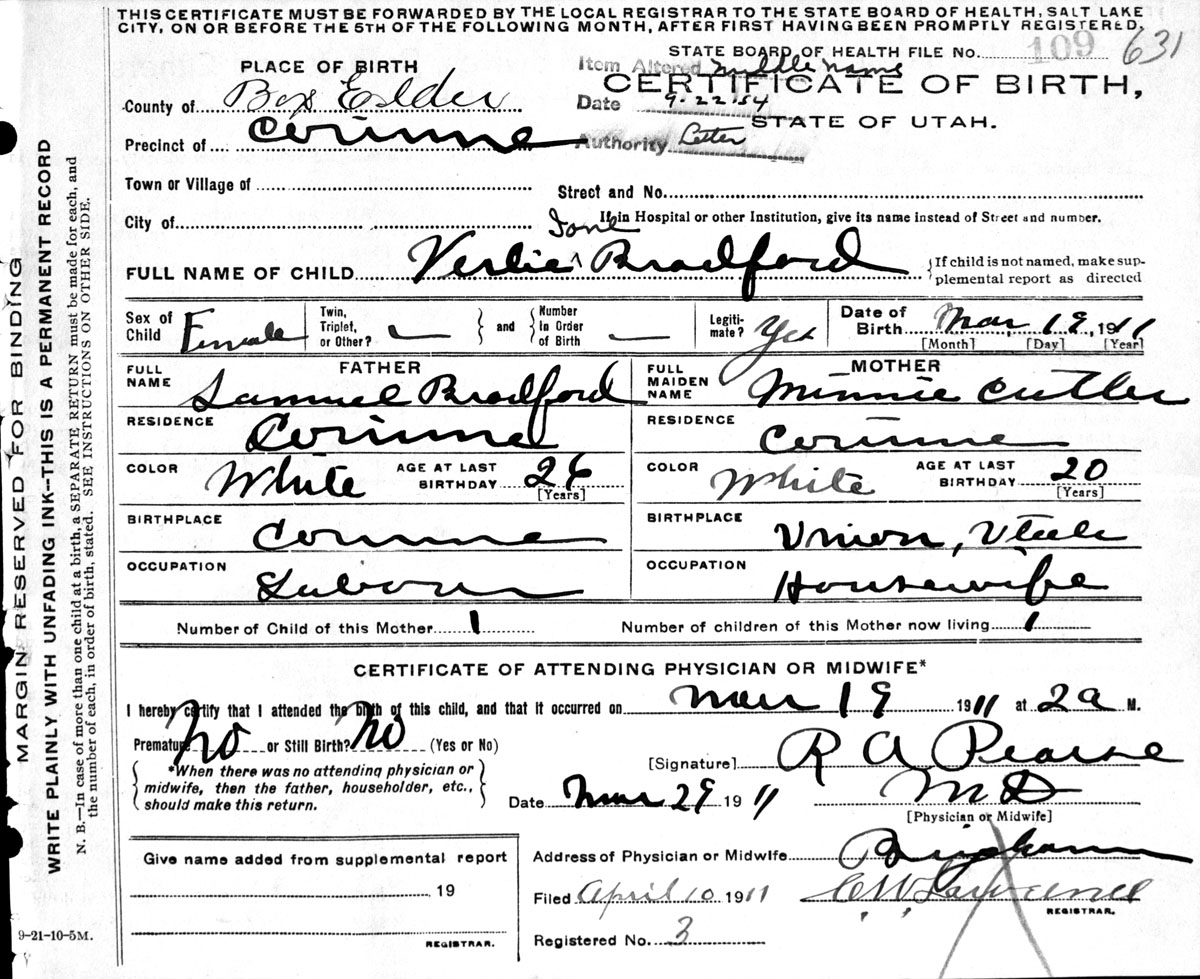 THIS CERTIFICATE MUST BE FORWARDED BY THE LOCAL REGISTRAR TO THE STATE BOARD OF HEALTH, SALT LAKE
CITY, ON OR BEFORE THE 5TH OF THE FOLLOWING MONTH, AFTER FIRST HAVING BEEN PROMPTLY REGISTERED.
STATE BOARD OF HEALTH FILE No. 109 631
PLACE OF BIRTH
Item Altered middle name
CERTIFICATE OF BIRTH,
County of Box Elder
Date 9-22-54
STATE OF UTAH.
Precinct of Corinne
Authority Letter
Town or Village of
Street and No.
City of
If in Hospital or other Institution, give its name instead of Street and number.
Ione
FULL NAME OF CHILD Verlie ^ Bradford
{If child is not named, make sup-
plemental report as directed
Sex of Child Female
Twin, Triplet, or Other? —
and
Number in Order of Birth —
Legiti- mate? Yes
Date of Birth Mar 19, 1911
[Month] [Day] [Year]
FATHER
FULL NAME Samuel Bradford
MOTHER
FULL MAIDEN NAME Minnie Cutler
RESIDENCE Corinne
RESIDENCE Corinne
COLOR White AGE AT LAST BIRTHDAY 26 [Years]
COLOR White AGE AT LAST BIRTHDAY 20 [Years]
BIRTHPLACE Corinne
BIRTHPLACE Union, Utah
OCCUPATION
OCCUPATION Housewife
Number of Child of this Mother 1
Number of children of this Mother now living 1
CERTIFICATE OF ATTENDING PHYSICIAN OR MIDWIFE*
I hereby certify that I attended the birth of this child, and that it occurred on Mar 19 1911 at 2a M.
Premature No or Still Birth? No (Yes or No)
*When there was no attending physician or
midwife, then the father, householder, etc.,
should make this return.
[Signature] R A Pearse
Date Mar 29 1911
M D
[Physician or Midwife]
Give name added from supplemental report
19
REGISTRAR.
Address of Physician or Midwife Brigham
Filed April 10 1911
C. W. Lawrence
REGISTRAR.
Registered No. 3
9-21-10-5M.
MARGIN RESERVED FOR BINDING
WRITE PLAINLY WITH UNFADING INK--THIS IS A PERMANENT RECORD
N. B.—In case of more than one child at a birth, a SEPARATE RETURN must be made for each, and
the number of each, in order of birth, stated. SEE INSTRUCTIONS ON OTHER SIDE.